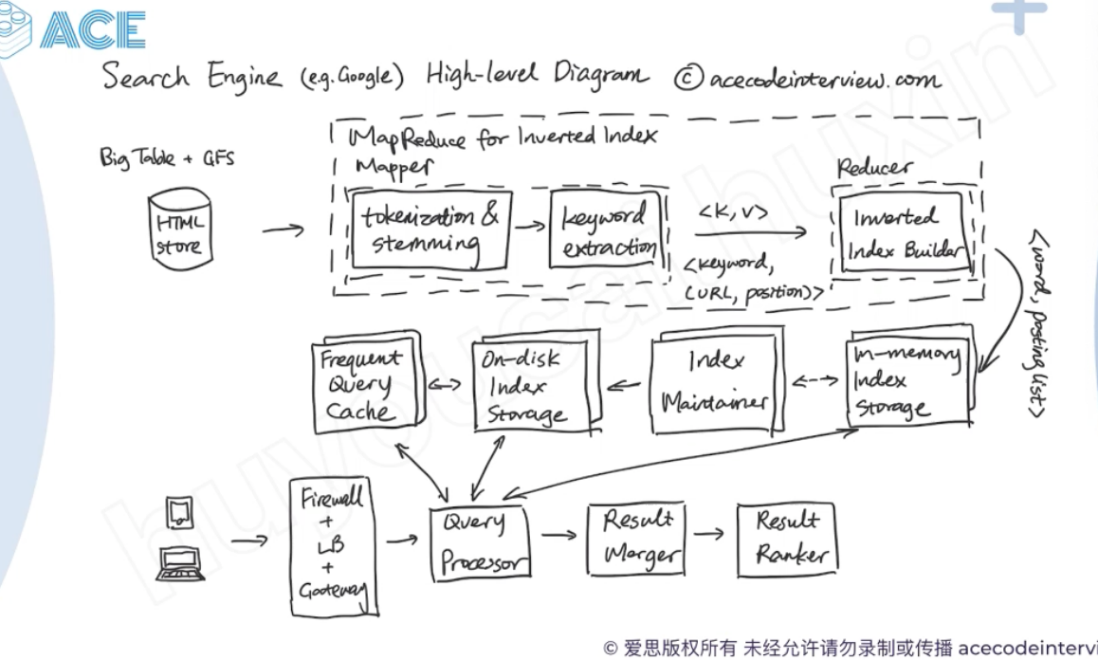 ACE
Search Engine (e.g. Google) High-level Diagram © acecodeinterview.com
Big Table + GFS
HTML
store
MapReduce for Inverted Index
Mapper
tokenization &
stemming
keyword
extraction
<k, v>
<keyword,
(URL, position)>
Reducer
Inverted
Index Builder
<word, posting list>
Frequent
Query
Cache
On-disk
Index
Storage
Index
Maintainer
In-memory
Index
Storage
Firewall
+
LB
+
Gateway
Query
Processor
Result
Merger
Result
Ranker
huyoucai huxin
© 爱思版权所有 未经允许请勿录制或传播 acecodeintervi